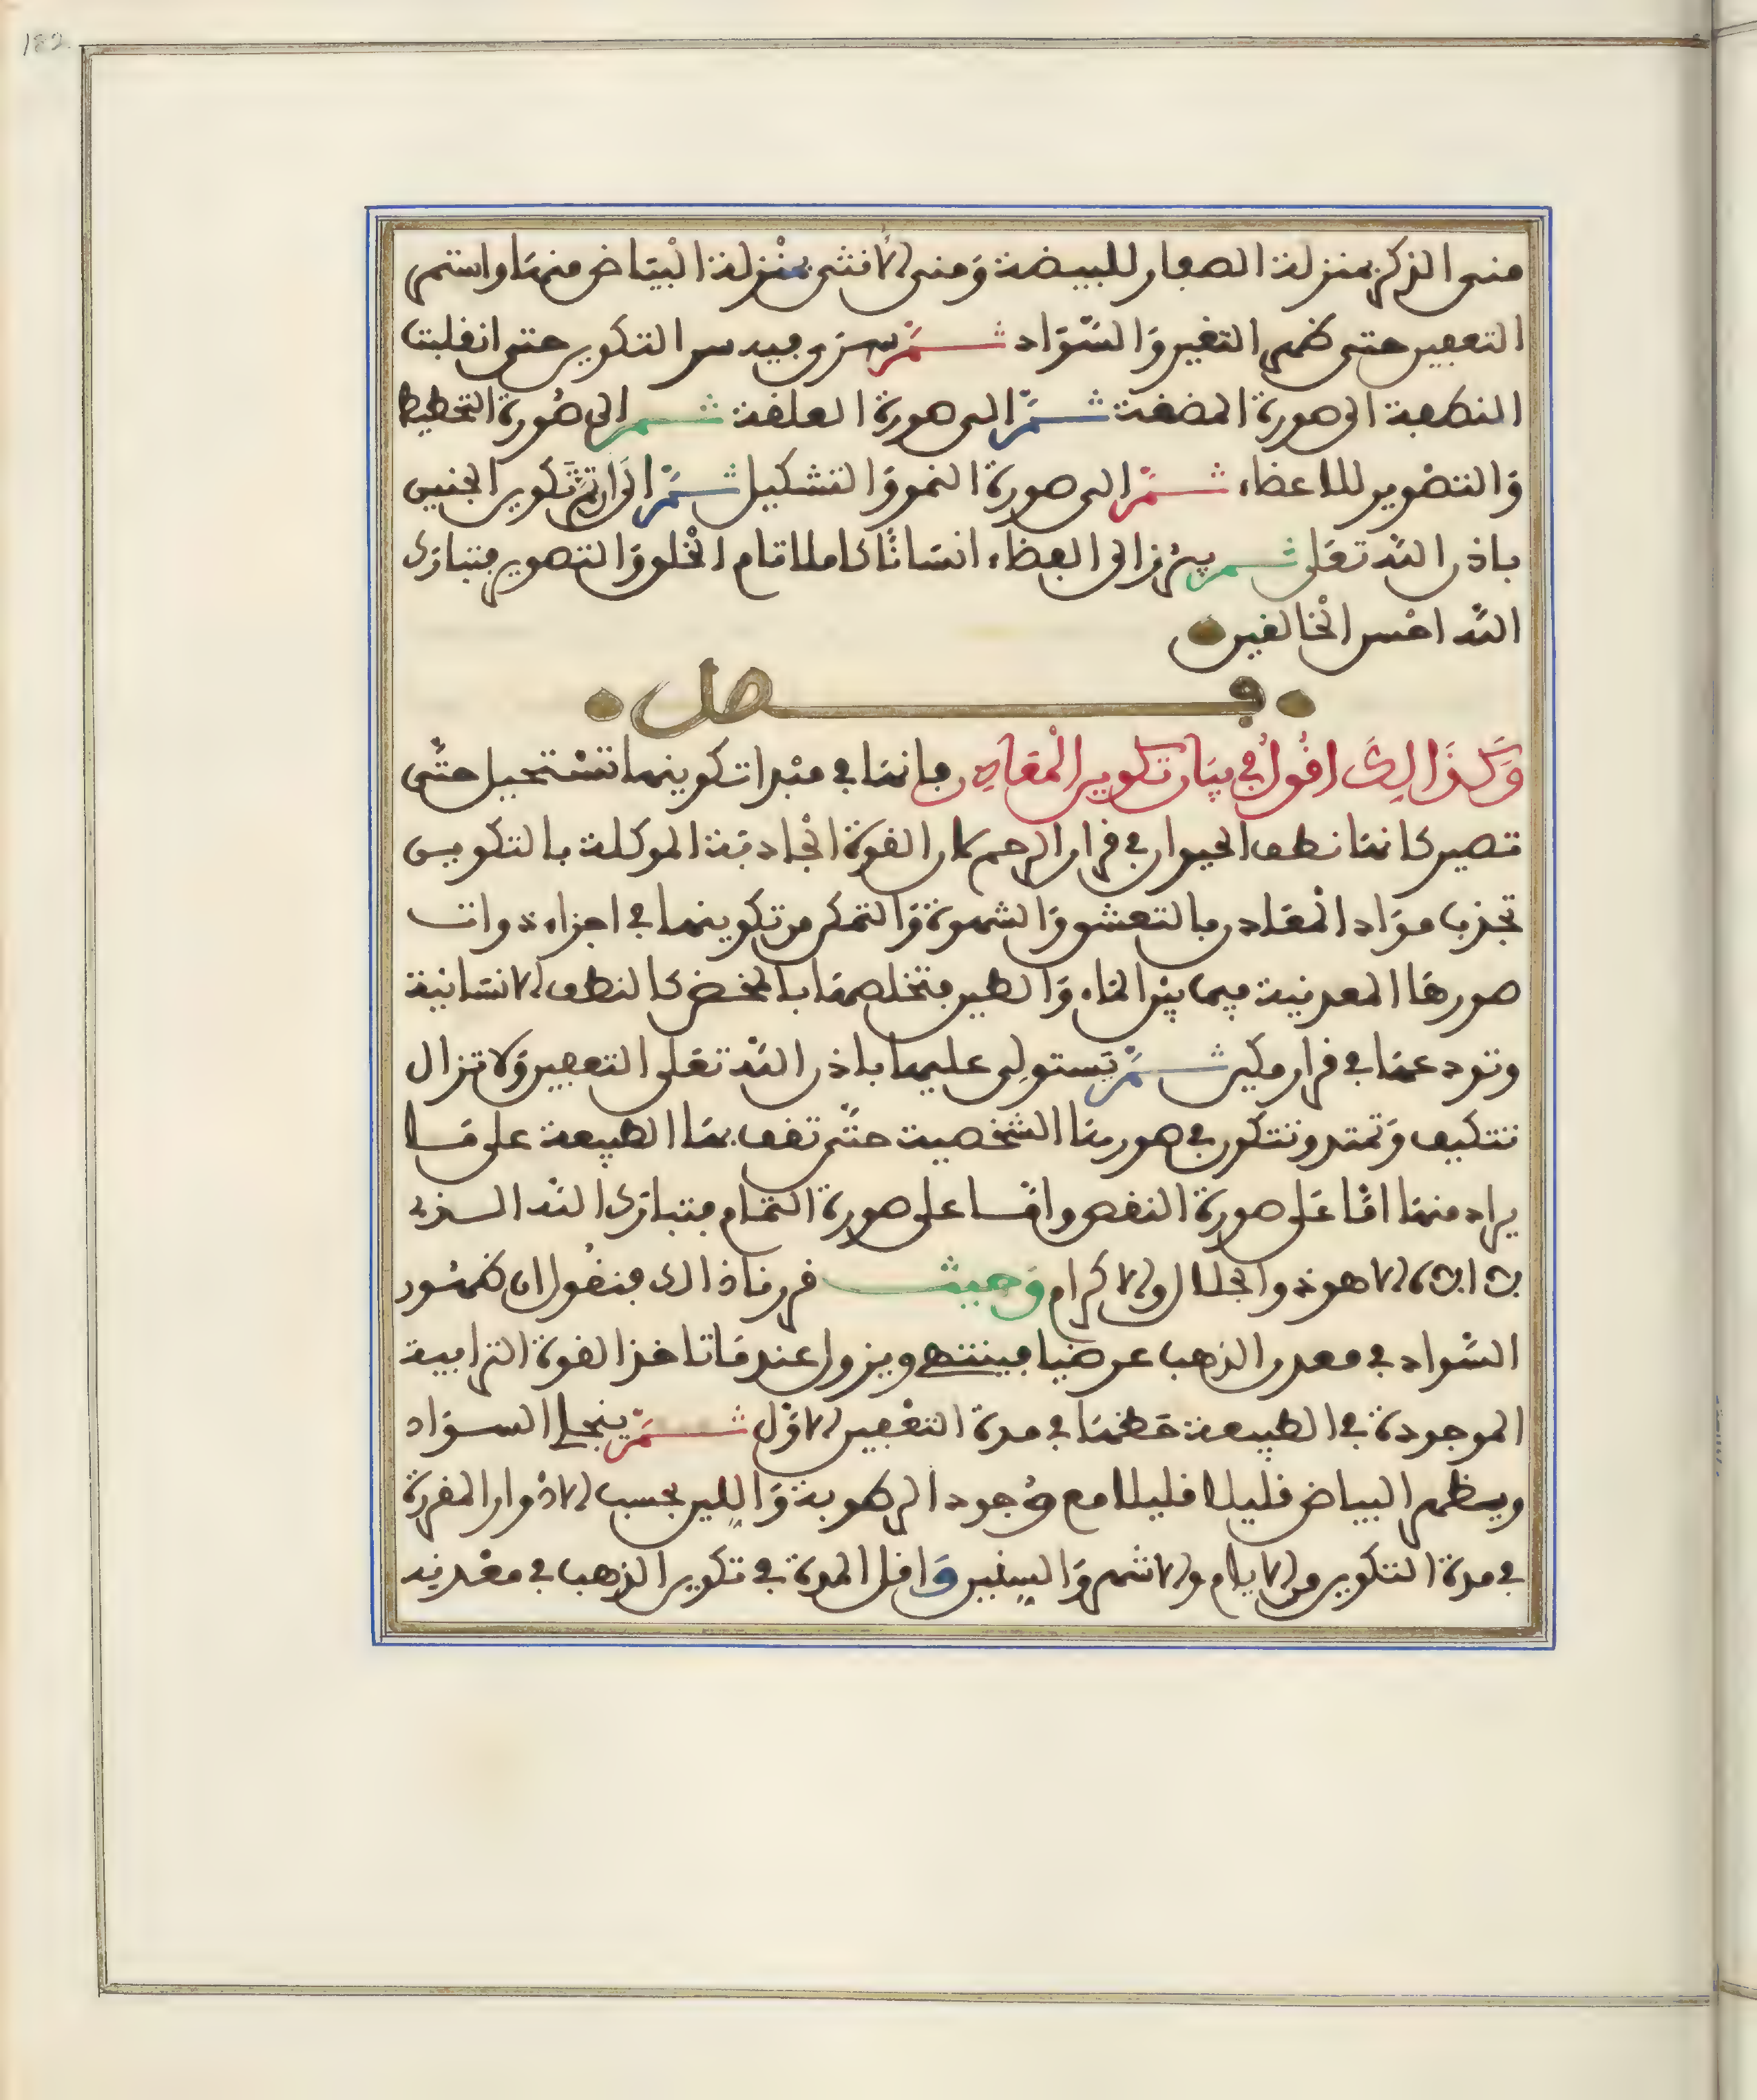 182
منى الذكر بمنزلة الصفار للبيضة ومنى الانثى بمنزلة البياض منها واستمر
التعفين حتى ظهر التغير والسواد ثم سرى فيه سر التكوين حتى انقلبت
النطفة الى صورة المضغة ثم الى صورة العلقة ثم الى صورة التخطيط
والتصوير للاعضاء ثم الى صورة النمو والتشكيل ثم الى ان تم تكوين الجنين
باذن الله تعلى ثم يبرز الى الفضاء انسانا كاملا تام الخلق والتصوير فتبارك
الله احسن الخالقين
فصل
وكذالك اقول في بيان تكوين المعادن فانها في مبدا تكوينها تستحيل حتى
تصير كانها نطف الحيوان في قرار الرحم لان القوة الجاذبة الموكلة بالتكوين
تجذب مواد المعادن بالتعشق والشهوة والتمكن من تكوينها في اجزاء ذوات
صورها المعدنية فيما بين الماء والطين فتخلصها بالمخض كالنطف الانسانية
وتودعها في قرار مكين ثم يستولى عليها باذن الله تعلى التعفين ولا تزال
تتكيف وتمتد وتتكون في صورتها الشخصية حتى تقف بها الطبيعة على ما
يراد منها اما على صورة النقص واما على صورة التمام فتبارك الله الذي
لا اله الا هو ذو الجلال والاكرام وحيث قررنا ذالك فنقول ان ظهور
السواد في معدن الذهب عرضيا فينتهي ويزول عندما تاخذ القوة الترابية
الموجودة في الطبيعة حظها في مدة التعفين الاول ثم ينجلي السواد
ويظهر البياض قليلا قليلا مع وجود الرطوبة واللين بحسب الادوار المقررة
في مدة التكوين من الايام والاشهر والسنين واقل المدة في تكوين الذهب في معدنه